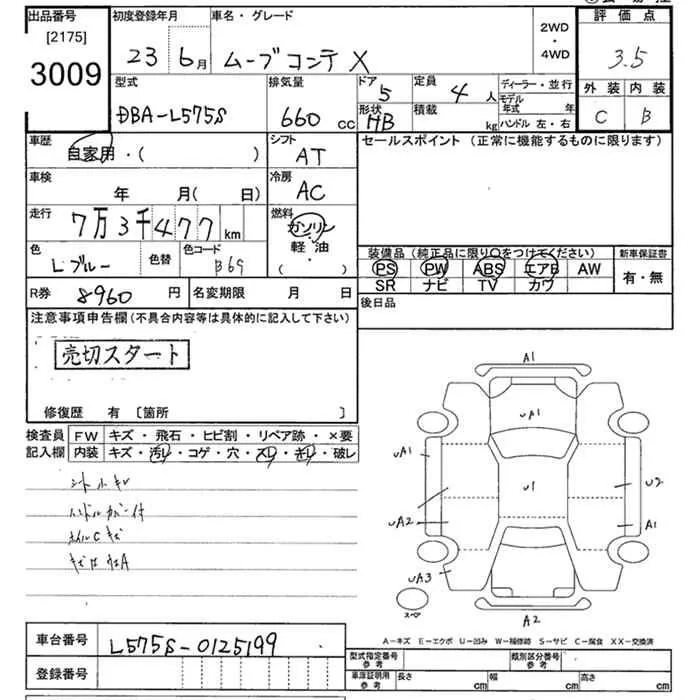 出品番号
[2175]
3009
初度登録年月
23 6月
車名・グレード
ムーブコンテ X
2WD
・
4WD
評価点
3.5
型式
DBA-L575S
排気量
660 cc
ドア
5
定員
4 人
形状
HB
積載
kg
ディーラー・並行
モデル年式 年
ハンドル 左・右
外装 内装
C B
車歴
自家用・( )
シフト
AT
セールスポイント (正常に機能するものに限ります)
車検
年 月( 日)
冷房
AC
走行
7万3千477km
燃料
ガソリン
軽・油
・( )
色
Lブルー
色替
色コード
B69
装備品 (純正品に限り○をつけてください)
PS PW ABS エアB AW
SR ナビ TV カワ
新車保証書
有・無
R券 8960 円
名変期限 月 日
後日品
注意事項申告欄(不具合内容等は具体的に記入して下さい)
売切スタート
修復歴 有 [箇所 ]
検査員
記入欄
FW キズ・飛石・ヒビ割・リペア跡・×要
内装 キズ・汚レ・コゲ・穴・スレ・キレ・破レ
ハンドルカバー付
ホイルCキズ
A1
uA1
uA1
u1
U2
uA2
A1
uA3
スペア
A2
A－キズ E－エクボ U－凹み W－補修跡 S－サビ C－腐食 XX－交換済
車台番号
L575S-0125199
登録番号
型式指定番号
参考
類別区分番号
参考
車庫証明用
参考
長さ cm 幅 cm 高さ cm